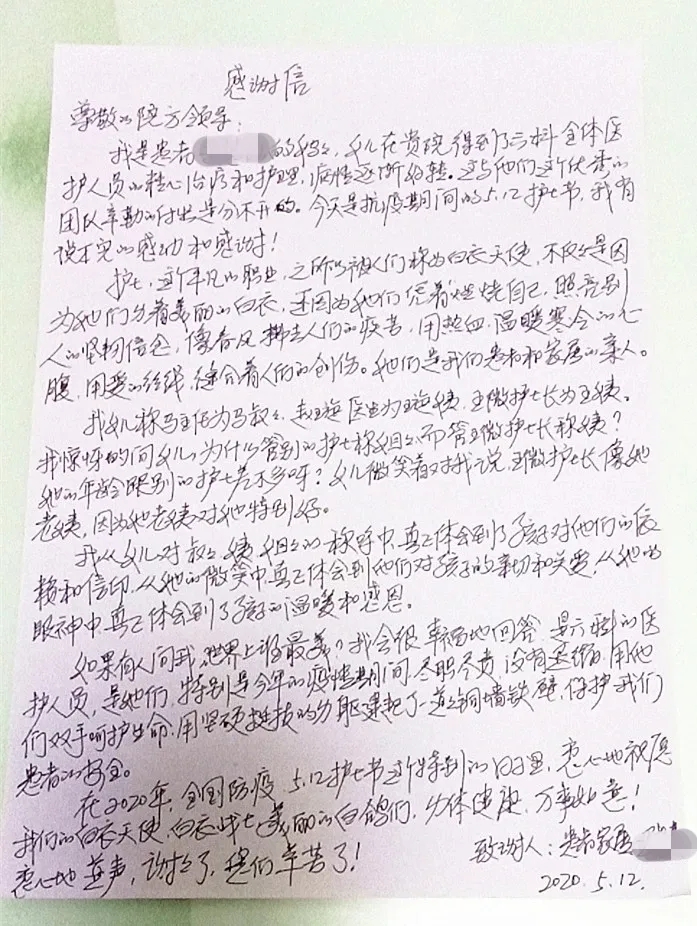 感谢信
尊敬的院方领导：
我是患者 的妈妈，女儿在贵院得到了六科全体医
护人员的精心治疗和护理，病情逐渐好转。这与他们这个优秀的
团队辛勤的付出是分不开的。今天是抗疫期间的5.12护士节，我有
说不完的感动和感谢！
护士，这个平凡的职业，之所以被人们称为白衣天使，不仅仅是因
为她们穿着美丽的白衣，还因为她们凭着燃烧自己，照亮别
人的坚韧信念，像春风拂去人们的疾苦，用热血温暖寒冷的心
腹，用爱的丝线，缝合着人们的创伤。她们是我们患者和家属的亲人。
我女儿称马主任为马叔叔，赵璇医生为璇姨，王微护士长为王姨。
我惊讶的问女儿，为什么管别的护士称姐姐，而管王微护士长称姨？
她的年龄跟别的护士差不多呀？女儿微笑着对我说，王微护士长像她
老姨，因为她老姨对她特别好。
我从女儿对叔叔、姨、姐姐的称呼中，真正体会到了孩子对他们的信
赖和信仰，从她的微笑中真正体会到他们对孩子的亲切和关爱，从她的
眼神中，真正体会到了孩子的温暖和感恩。
如果有人问我，世界上谁最美？我会很幸福地回答，是六科的医
护人员，是她们，特别是今年的疫情期间，尽职尽责，没有退缩，用他
们双手呵护生命，用坚硬挺拔的身躯垒起了一道道铜墙铁壁，保护我们
患者的安全。
在2020年，全国防疫，5.12护士节这个特别的日子里，衷心地祝愿
我们的白衣天使，白衣战士，美丽的白鸽们，身体健康，万事如意！
衷心地道声，谢谢了，您们辛苦了！
致谢人：患者家属
2020.5.12.